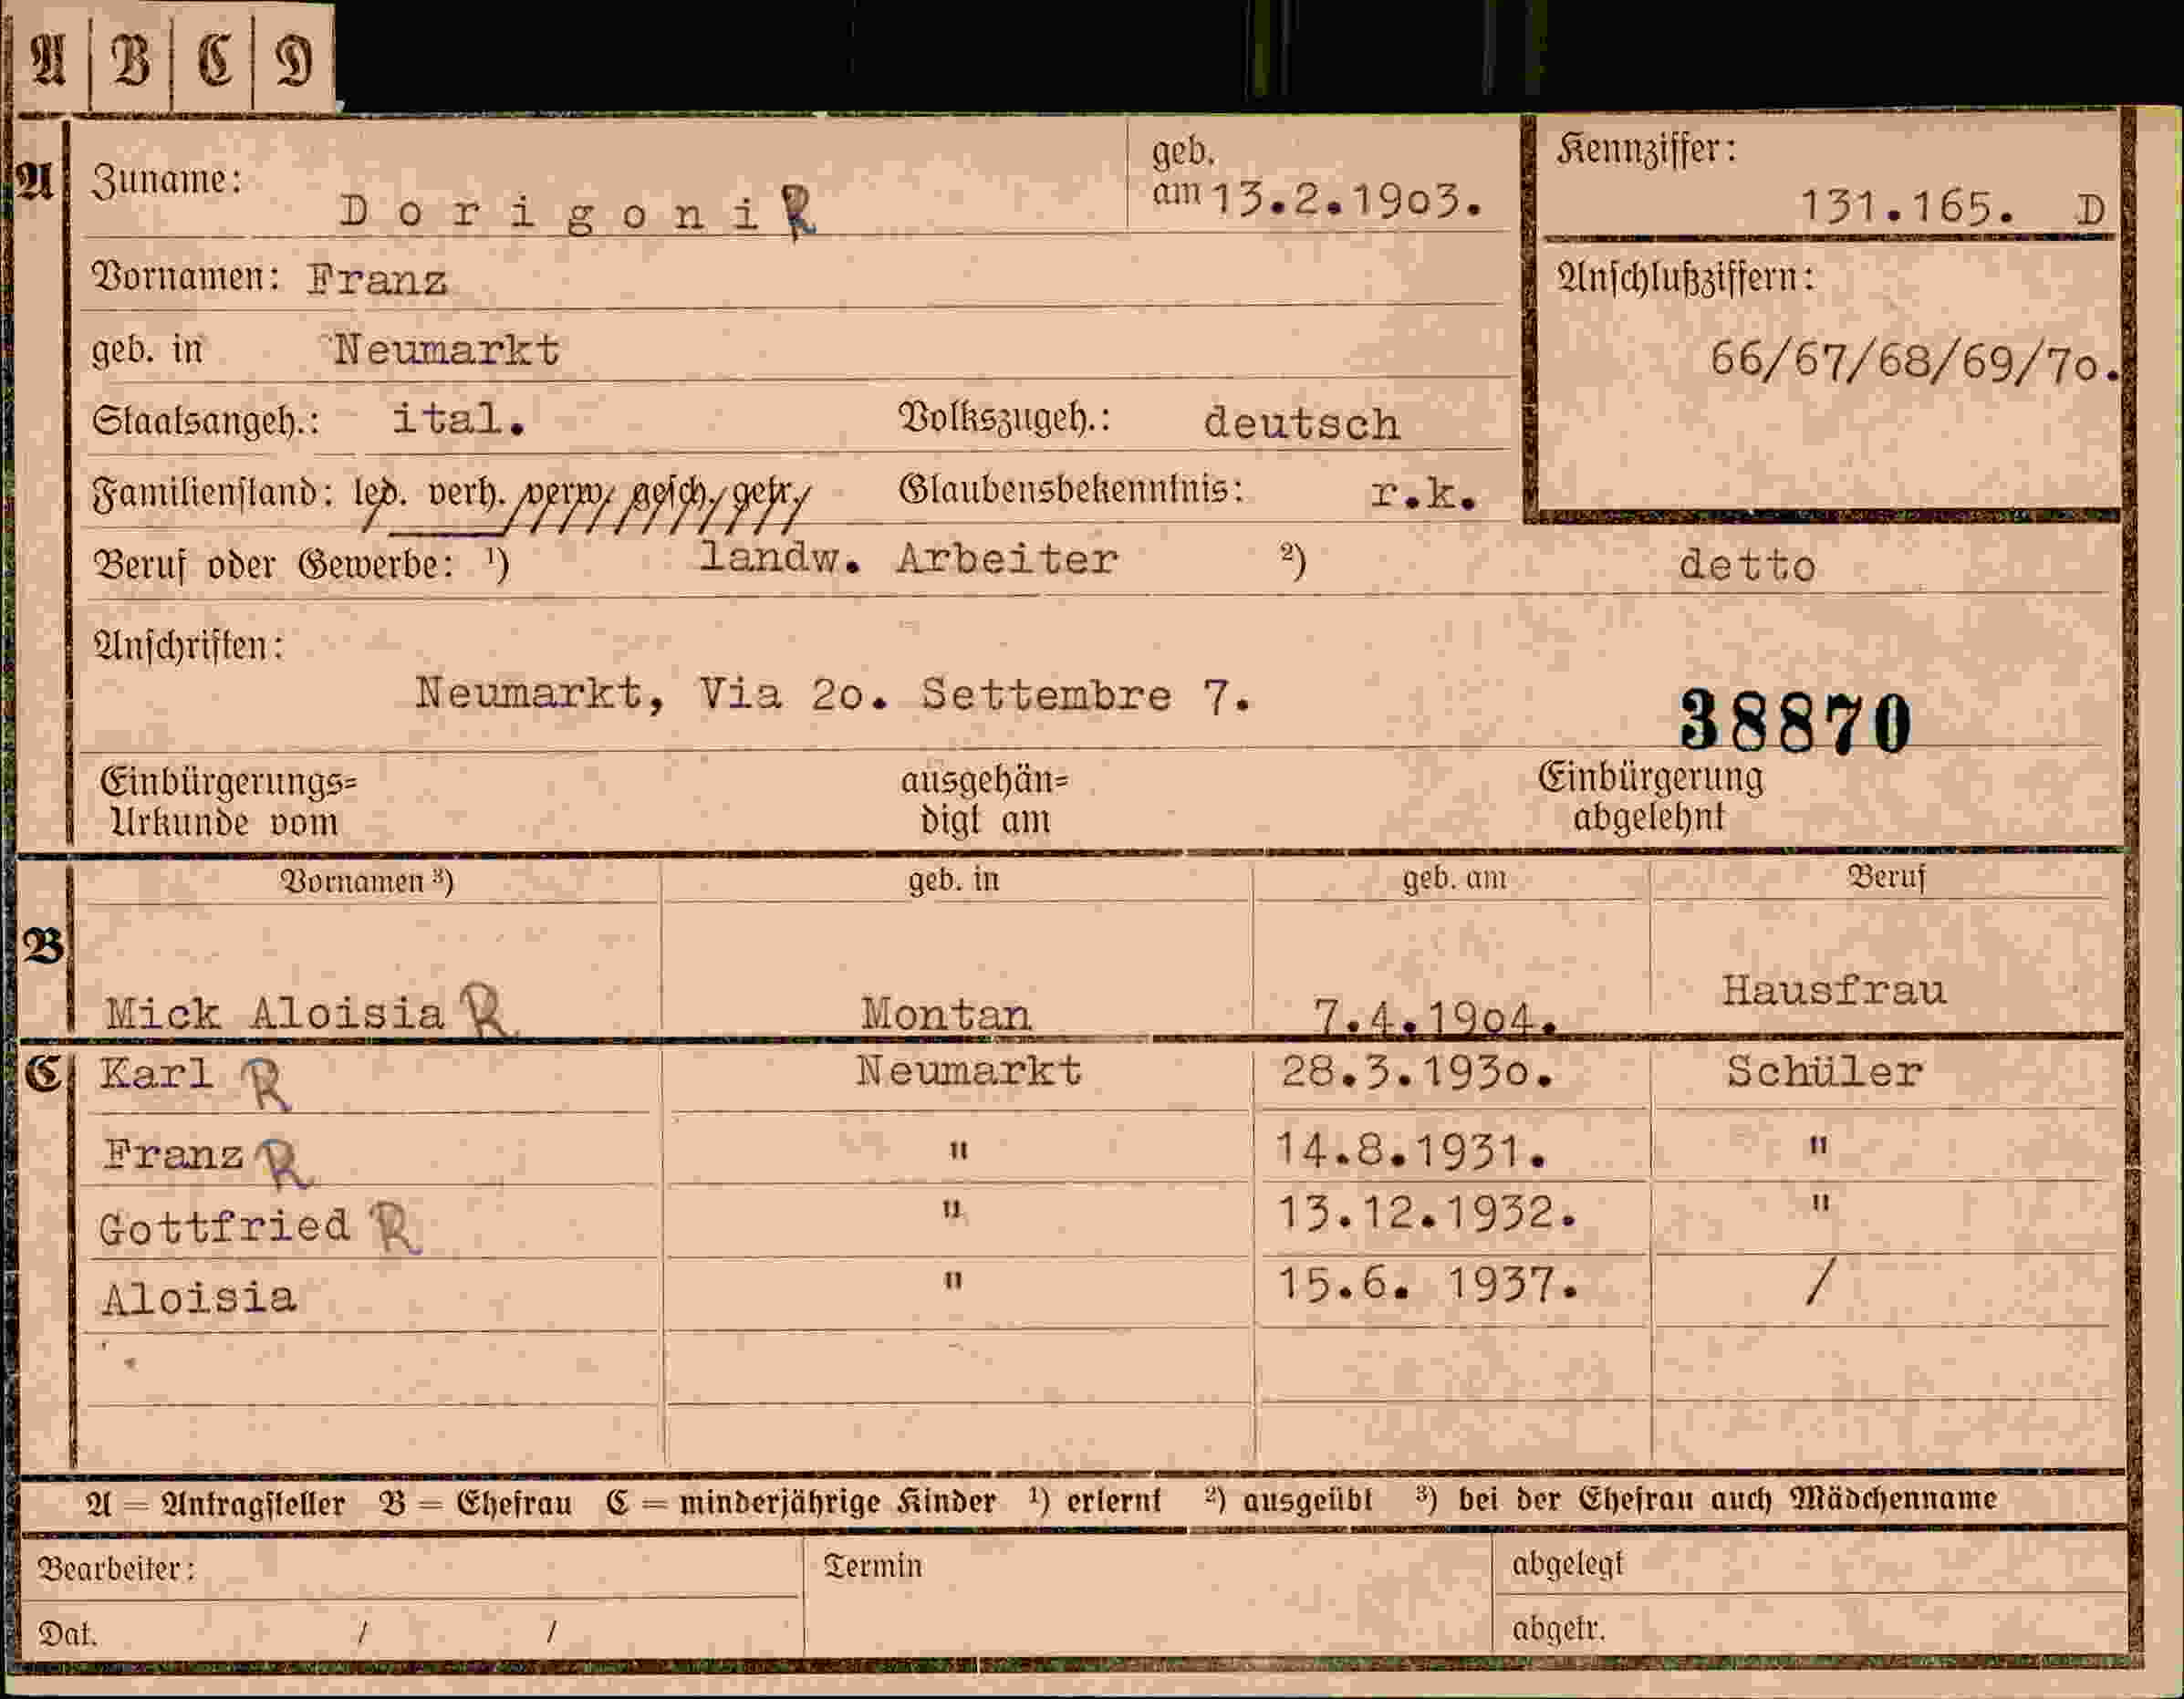 A B C D
A Zuname: Dorigoni R geb. am 13.2.1903. Kennziffer: 131.165. D
Vornamen: Franz Anschlußziffern:
geb. in Neumarkt 66/67/68/69/70.
Staatsangeh.: ital. Volkszugeh.: deutsch
Familienstand: led. verh. verw. gesch. getr. Glaubensbekenntnis: r.k.
Beruf oder Gewerbe: 1) landw. Arbeiter 2) detto
Anschriften:
Neumarkt, Via 20. Settembre 7. 38870
Einbürgerungs= ausgehän= Einbürgerung
Urkunde vom digt am abgelehnt
Vornamen 3) geb. in geb. am Beruf
B Mick Aloisia R Montan 7.4.1904. Hausfrau
C Karl R Neumarkt 28.3.1930. Schüler
Franz R " 14.8.1931. "
Gottfried R " 13.12.1932. "
Aloisia " 15.6. 1937. /
A = Antragsteller B = Ehefrau C = minderjährige Kinder 1) erlernt 2) ausgeübt 3) bei der Ehefrau auch Mädchenname
Bearbeiter: Termin abgelegt
Dat. / / abgetr.